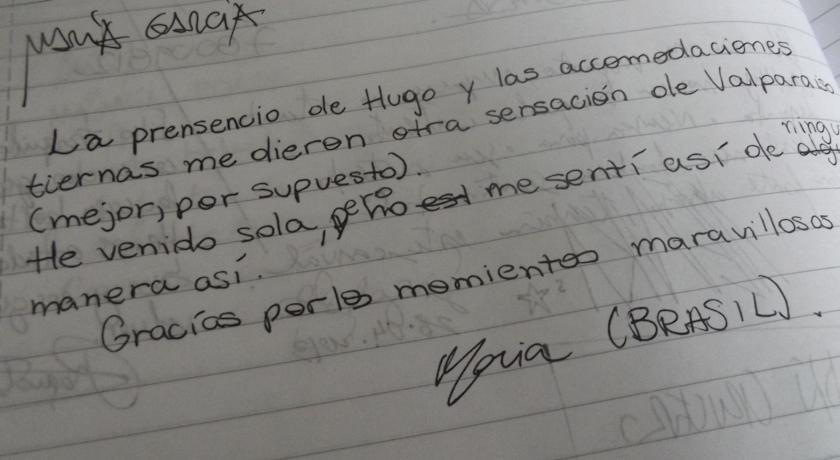 La prensencio de Hugo y las accomedaciones
tiernas me dieron otra sensación de Valparaiso
(mejor, por supuesto).
He venido sola, pero me sentí así de ningu
manera así.
Gracias por los momientos maravillosos
Maria (BRASIL).